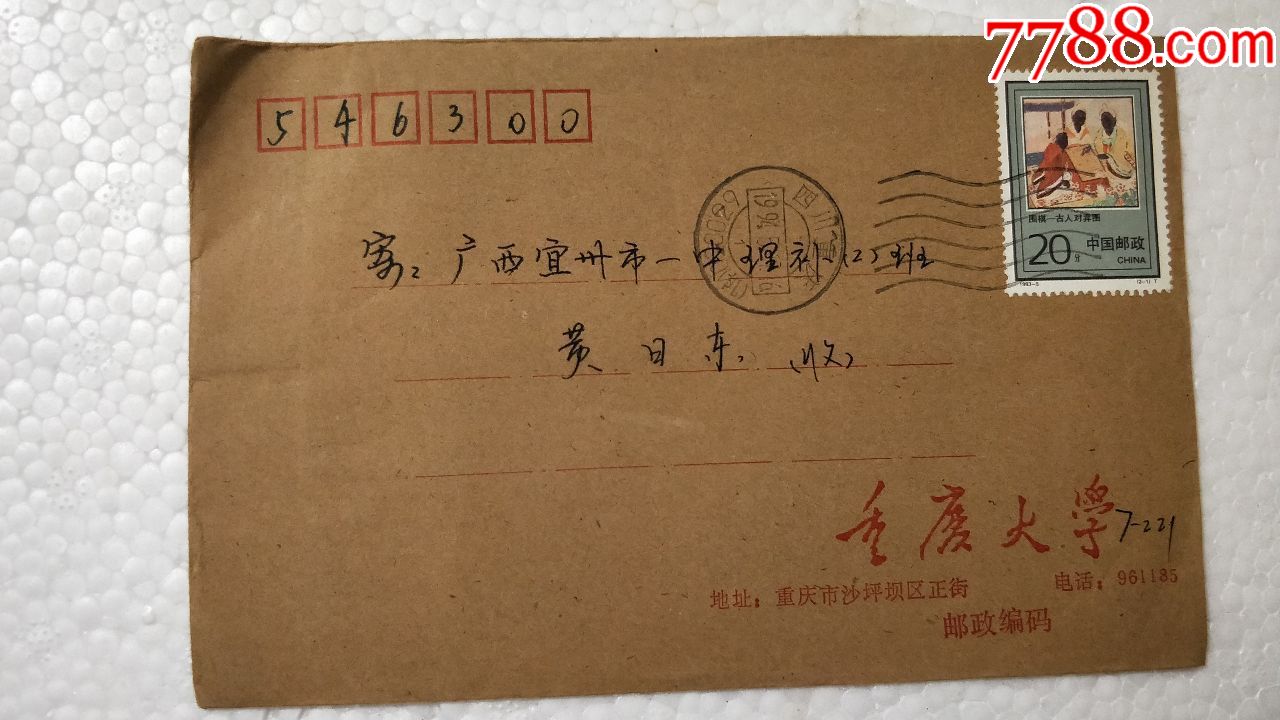 7788.com
546300
寄：广西宜州市一中理补(2)班
黄日东(收)
围棋—古人对弈图
20分 中国邮政
CHINA
1993-5 (2-1)T
四川
重庆大学 7-221
地址：重庆市沙坪坝区正街 电话：961185
邮政编码